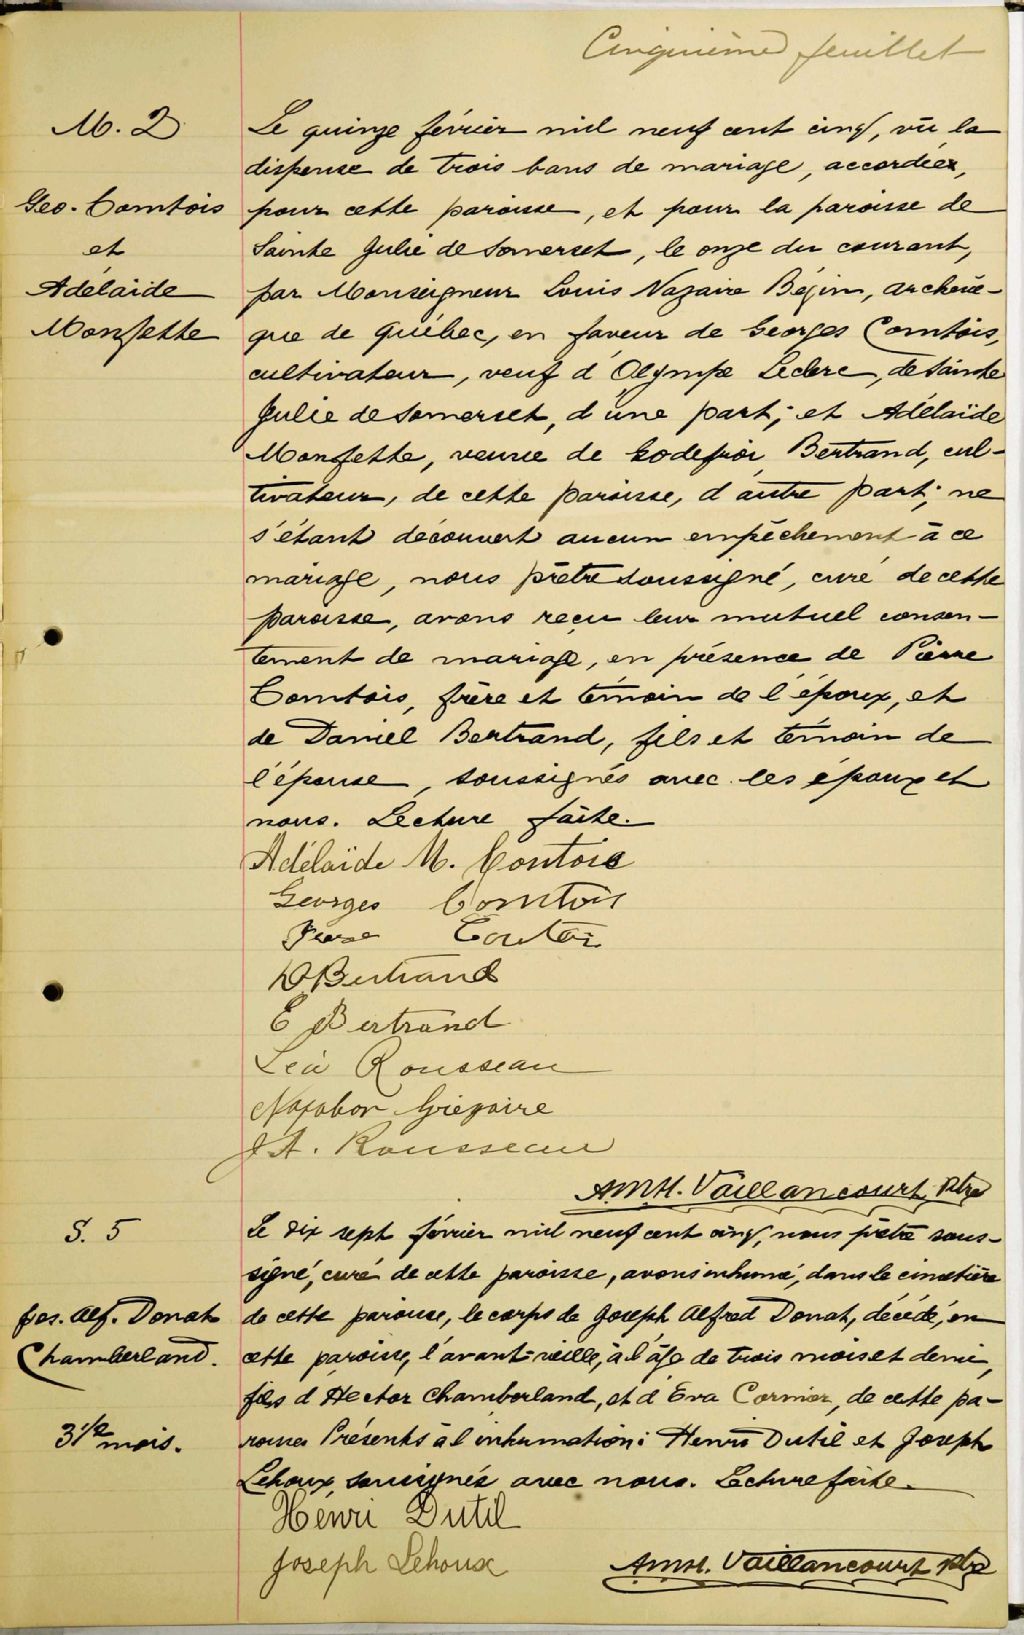 Cinquième feuillet
M. 2
Geo. Comtois
et
Adélaide
Monfette
Le quinze février mil neuf cent cinq, vu la
dispense de trois bans de mariage, accordée,
pour cette paroisse, et pour la paroisse de
Sainte Julie de Somerset, le onze du courant,
par Monseigneur Louis Nazaire Bégin, archevê-
que de Québec, en faveur de Georges Comtois,
cultivateur, veuf d'Olympe Leclerc, de Sainte
Julie de Somerset, d'une part; et Adélaïde
Monfette, veuve de Godefroi Bertrand, cul-
tivateur, de cette paroisse, d'autre part; ne
s'étant découvert aucun empêchement à ce
mariage, nous prêtre soussigné, curé de cette
paroisse, avons reçu leur mutuel consen-
tement de mariage, en présence de Pierre
Comtois, frère et témoin de l'époux, et
de Daniel Bertrand, fils et témoin de
l'épouse, soussignés avec les époux et
nous. Lecture faite.
Adélaïde M. Contois
Georges Comtois
Pierre Contoi
D Bertrand
E Bertrand
Léa Rousseau
Grégoire
J A. Rousseau
A.M.H. Vaillancourt, Ptre
S. 5
Jos. Alf. Donat
Chamberland.
3 1/2 mois.
Le dix sept février mil neuf cent cinq, nous prêtre sous-
signé, curé de cette paroisse, avons inhumé, dans le cimetière
de cette paroisse, le corps de Joseph Alfred Donat, décédé, en
cette paroisse, l'avant-veille, à l'âge de trois mois et demi,
fils d'Hector Chamberland, et d'Eva Cormier, de cette pa-
roisse. Présents à l'inhumation: Henri Dutil et Joseph
Lehoux, soussignés avec nous. Lecture faite.
Henri Dutil
Joseph Lehoux
A.M.H. Vaillancourt Ptre